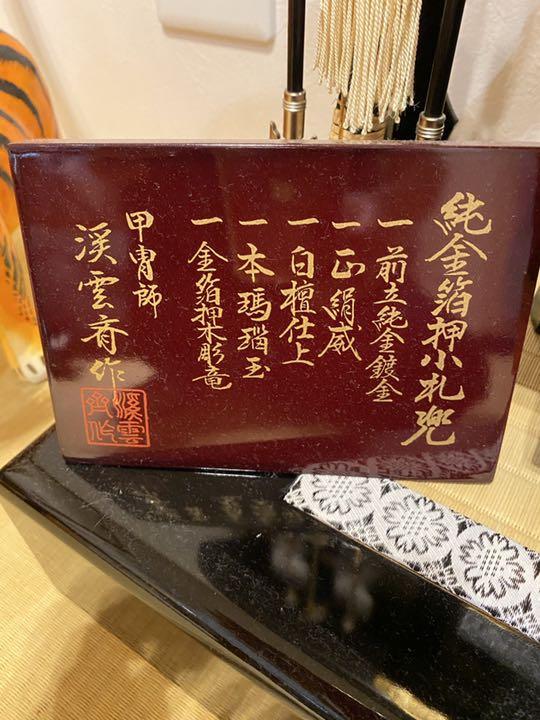 純金箔押小札兜
一 前立純金鍍金
一 正絹威
一 白檀仕上
一 本瑪瑙玉
一 金箔押木彫竜
甲冑師
渓雲斉作
渓雲
斉作